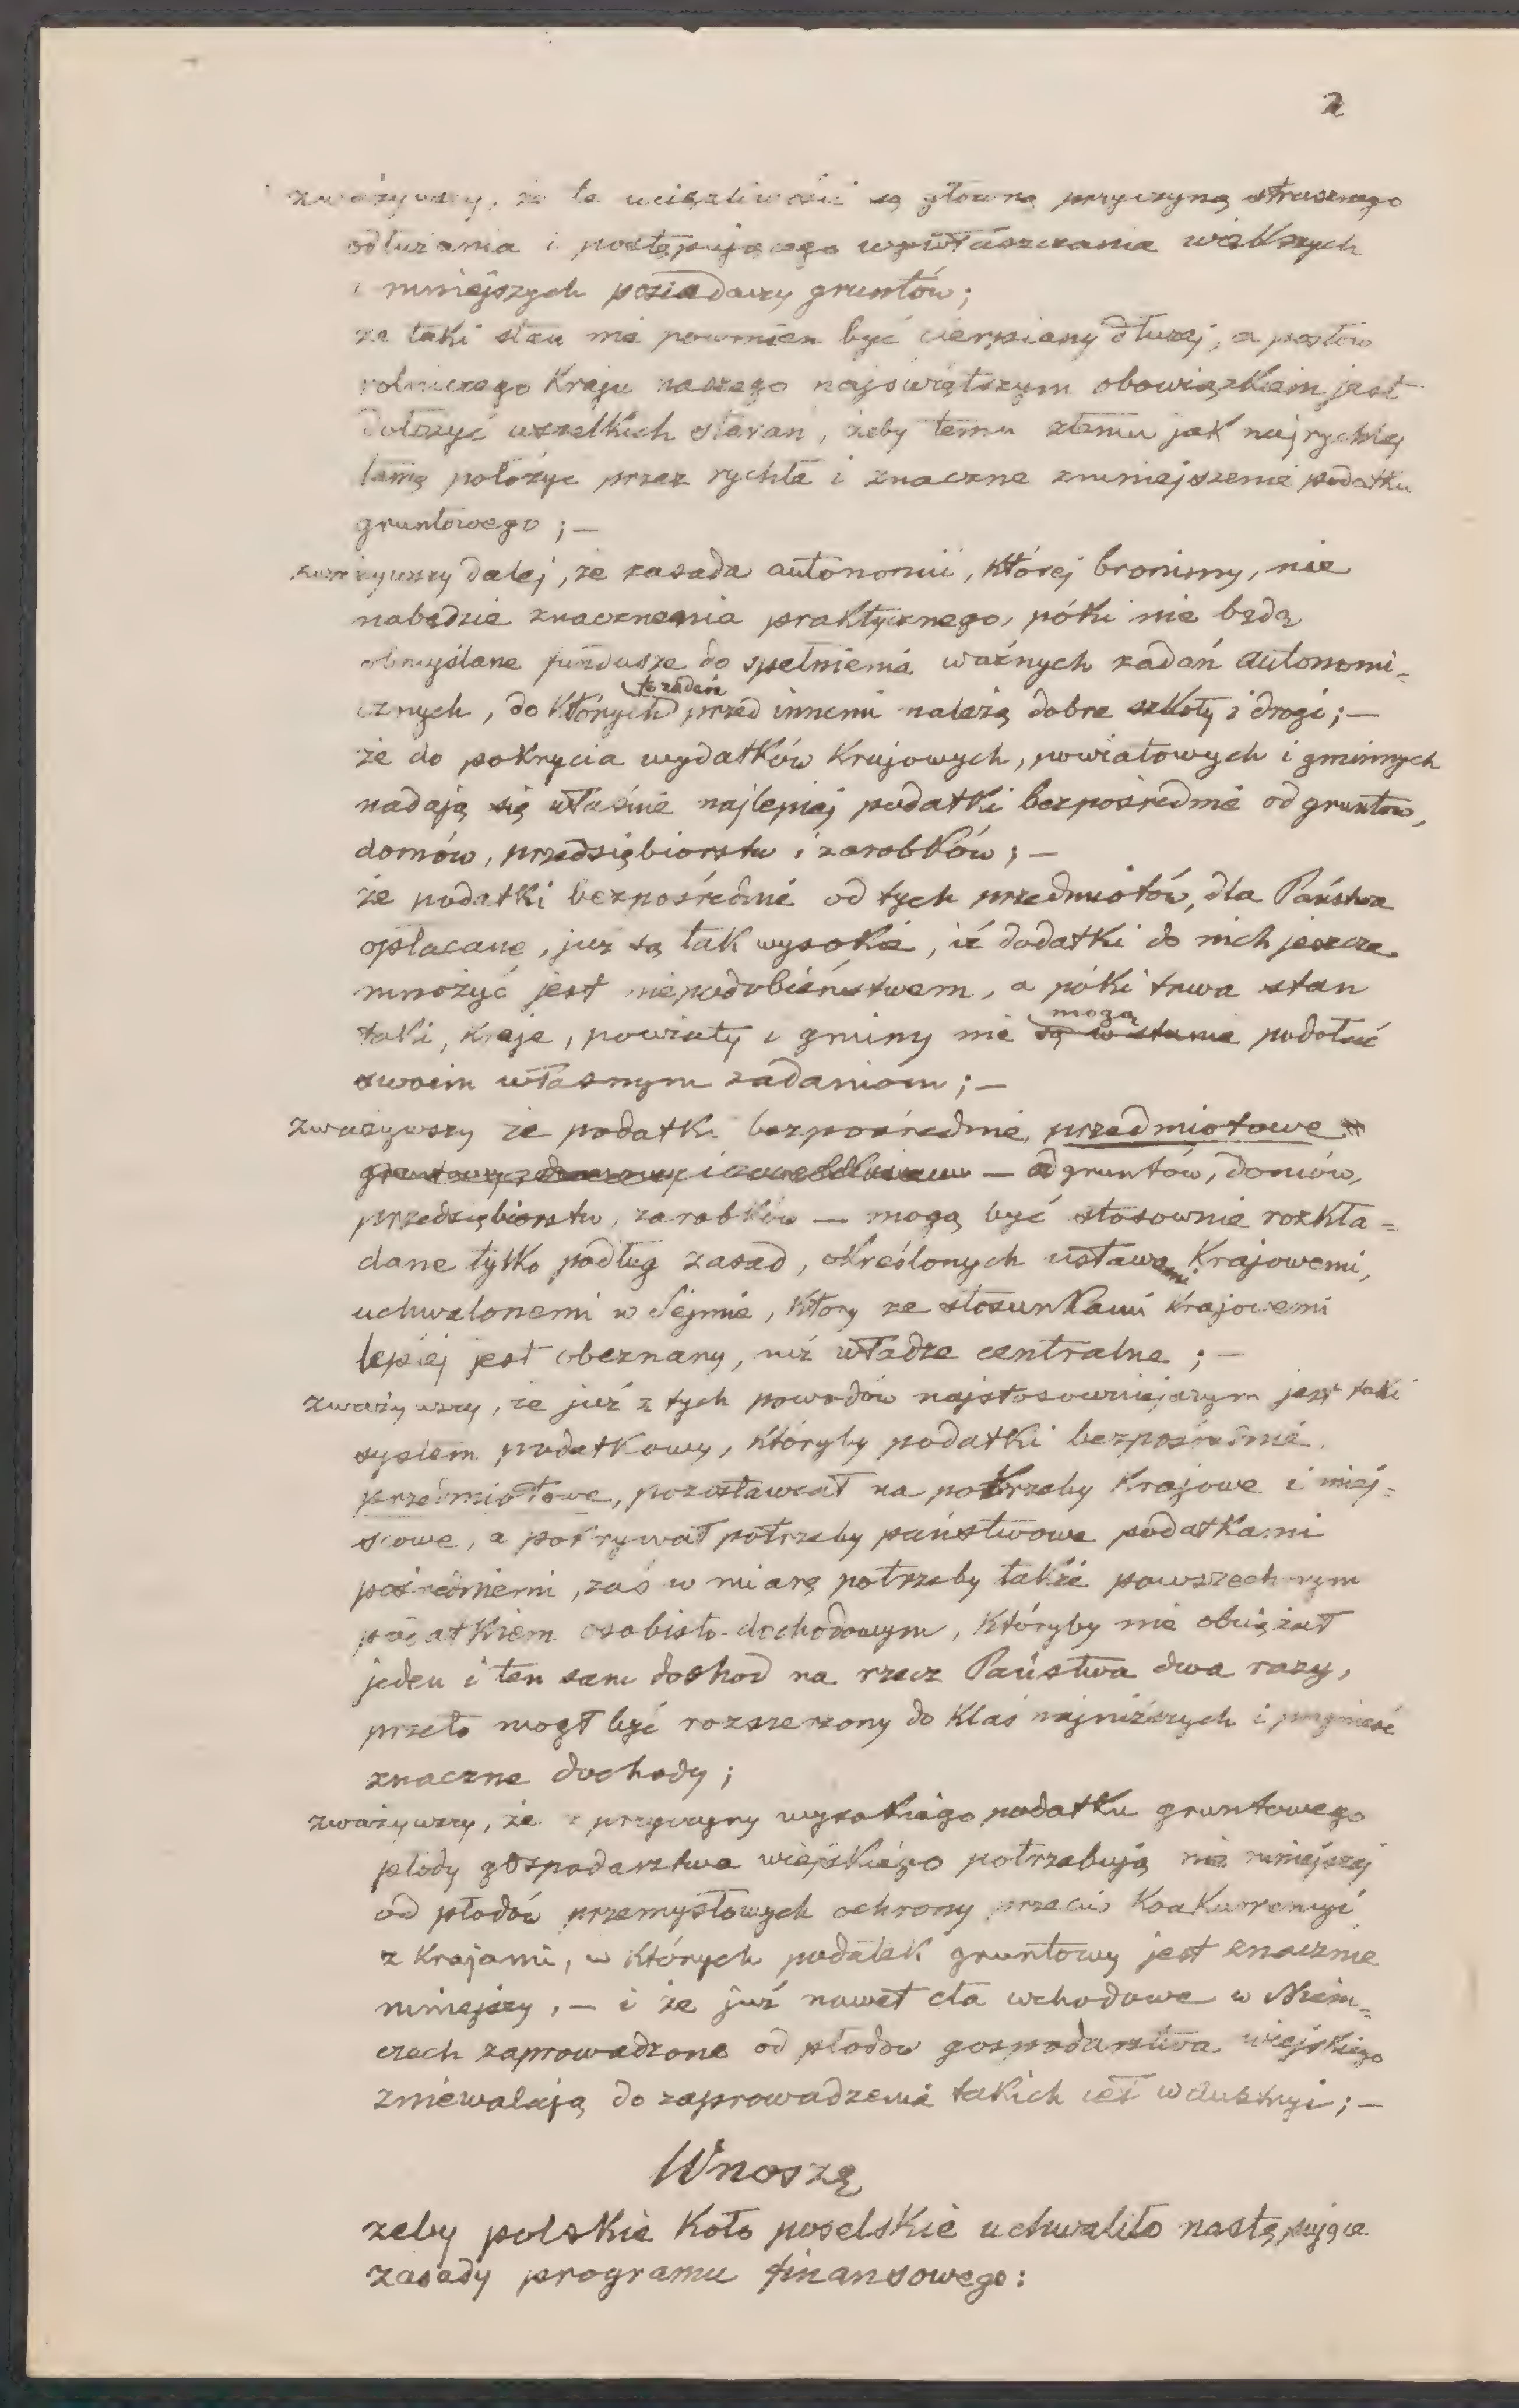 2
zważywszy, że te uciążliwości są główną przyczyną strasznego
odłużania i postępującego wywłaszczania większych
i mniejszych posiadaczy gruntów;
że taki stan nie powinien być cierpiany dłużej, a posłów
rolniczego Kraju naszego najświętszym obowiązkiem jest
dołożyć wszelkich starań, żeby temu złemu jak najrychlej
tamę położyć przez rychłe i znaczne zmniejszenie podatku
gruntowego; —
zważywszy dalej, że zasada autonomii, której bronimy, nie
nabędzie znaczenia praktycznego, póki nie będą
obmyślane fundusze do spełnienia ważnych zadań autonomi-
cznych, do których to zadań przed innemi należą dobre szkoły i drogi; —
że do pokrycia wydatków Krajowych, powiatowych i gminnych
nadają się właśnie najlepiej podatki bezpośrednie od gruntów,
domów, przedsiębiorstw i zarobków; —
że podatki bezpośrednie od tych przedmiotów, dla Państwa
opłacane, już są tak wysokie, iż dodatki do nich jeszcze
mnożyć jest niepodobieństwem, a póki trwa stan
taki, Kraje, powiaty i gminy nie są w stanie mogą podołać
swoim własnym zadaniom; —
zważywszy że podatki bezpośrednie, przedmiotowe
— od gruntów, domów,
przedsiębiorstw, zarobków — mogą być stosownie rozkła-
dane tylko podług zasad, określonych ustawami Krajowemi,
uchwalonemi w Sejmie, który ze stosunkami Krajowemi
lepiej jest obeznany, niż władze centralne; —
zważywszy, że już z tych powodów najstosowniejszym jest taki
system podatkowy, któryby podatki bezpośrednie
przedmiotowe, pozostawiał na potrzeby Krajowe i miej-
scowe, a pokrywał potrzeby państwowe podatkami
pośredniemi, zaś w miarę potrzeby także powszechnym
podatkiem osobisto-dochodowym, któryby nie obciążał
jeden i ten sam dochod na rzecz Państwa dwa razy,
przeto mogł być rozszerzony do Klas najniższych i przynieść
znaczne dochody;
zważywszy, że z przyczyny wysokiego podatku gruntowego
płody gospodarstwa wiejskiego potrzebują nie mniejszej
od płodów przemysłowych ochrony przeciw Konkurencyi
z Krajami, w których podatek gruntowy jest znacznie
mniejszy, — i że już nawet cła wchodowe w Niem-
czech zaprowadzone od płodów gospodarstwa wiejskiego
zniewalają do zaprowadzenia takich ceł w Austryi; —
Wnoszę
żeby polskie Koło poselskie uchwaliło następujące
zasady programu finansowego: